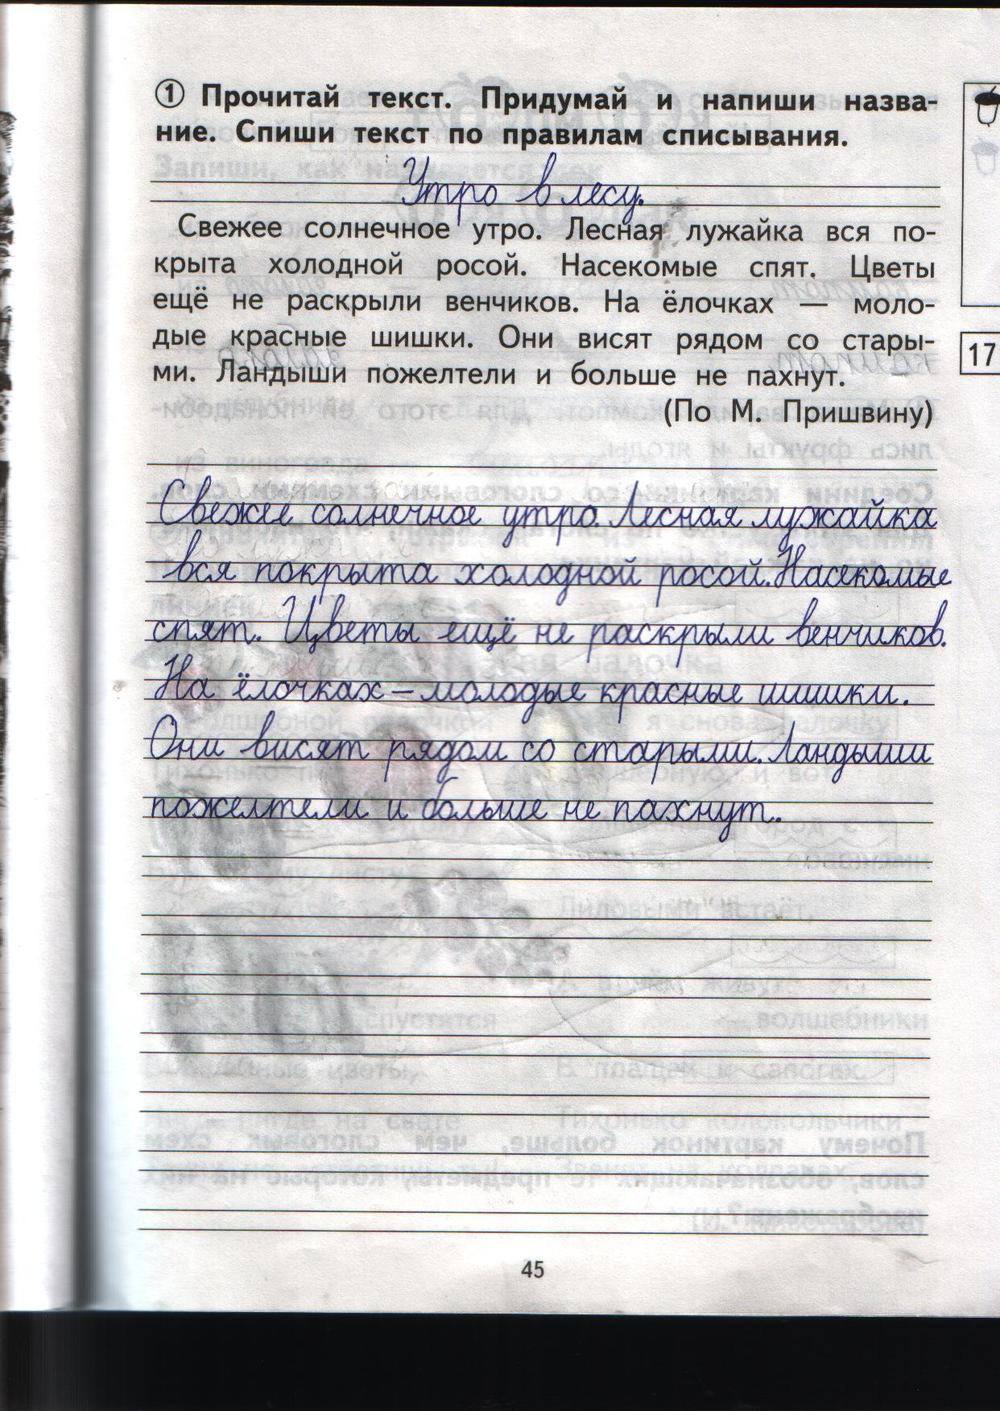 ① Прочитай текст. Придумай и напиши назва-
ние. Спиши текст по правилам списывания.
Утро в лесу.
Свежее солнечное утро. Лесная лужайка вся по-
крыта холодной росой. Насекомые спят. Цветы
ещё не раскрыли венчиков. На ёлочках — моло-
дые красные шишки. Они висят рядом со стары-
ми. Ландыши пожелтели и больше не пахнут.
17
(По М. Пришвину)
Свежее солнечное утро. Лесная лужайка
вся покрыта холодной росой. Насекомые
спят. Цветы ещё не раскрыли венчиков.
На ёлочках – молодые красные шишки.
Они висят рядом со старыми. Ландыши
пожелтели и больше не пахнут.
45